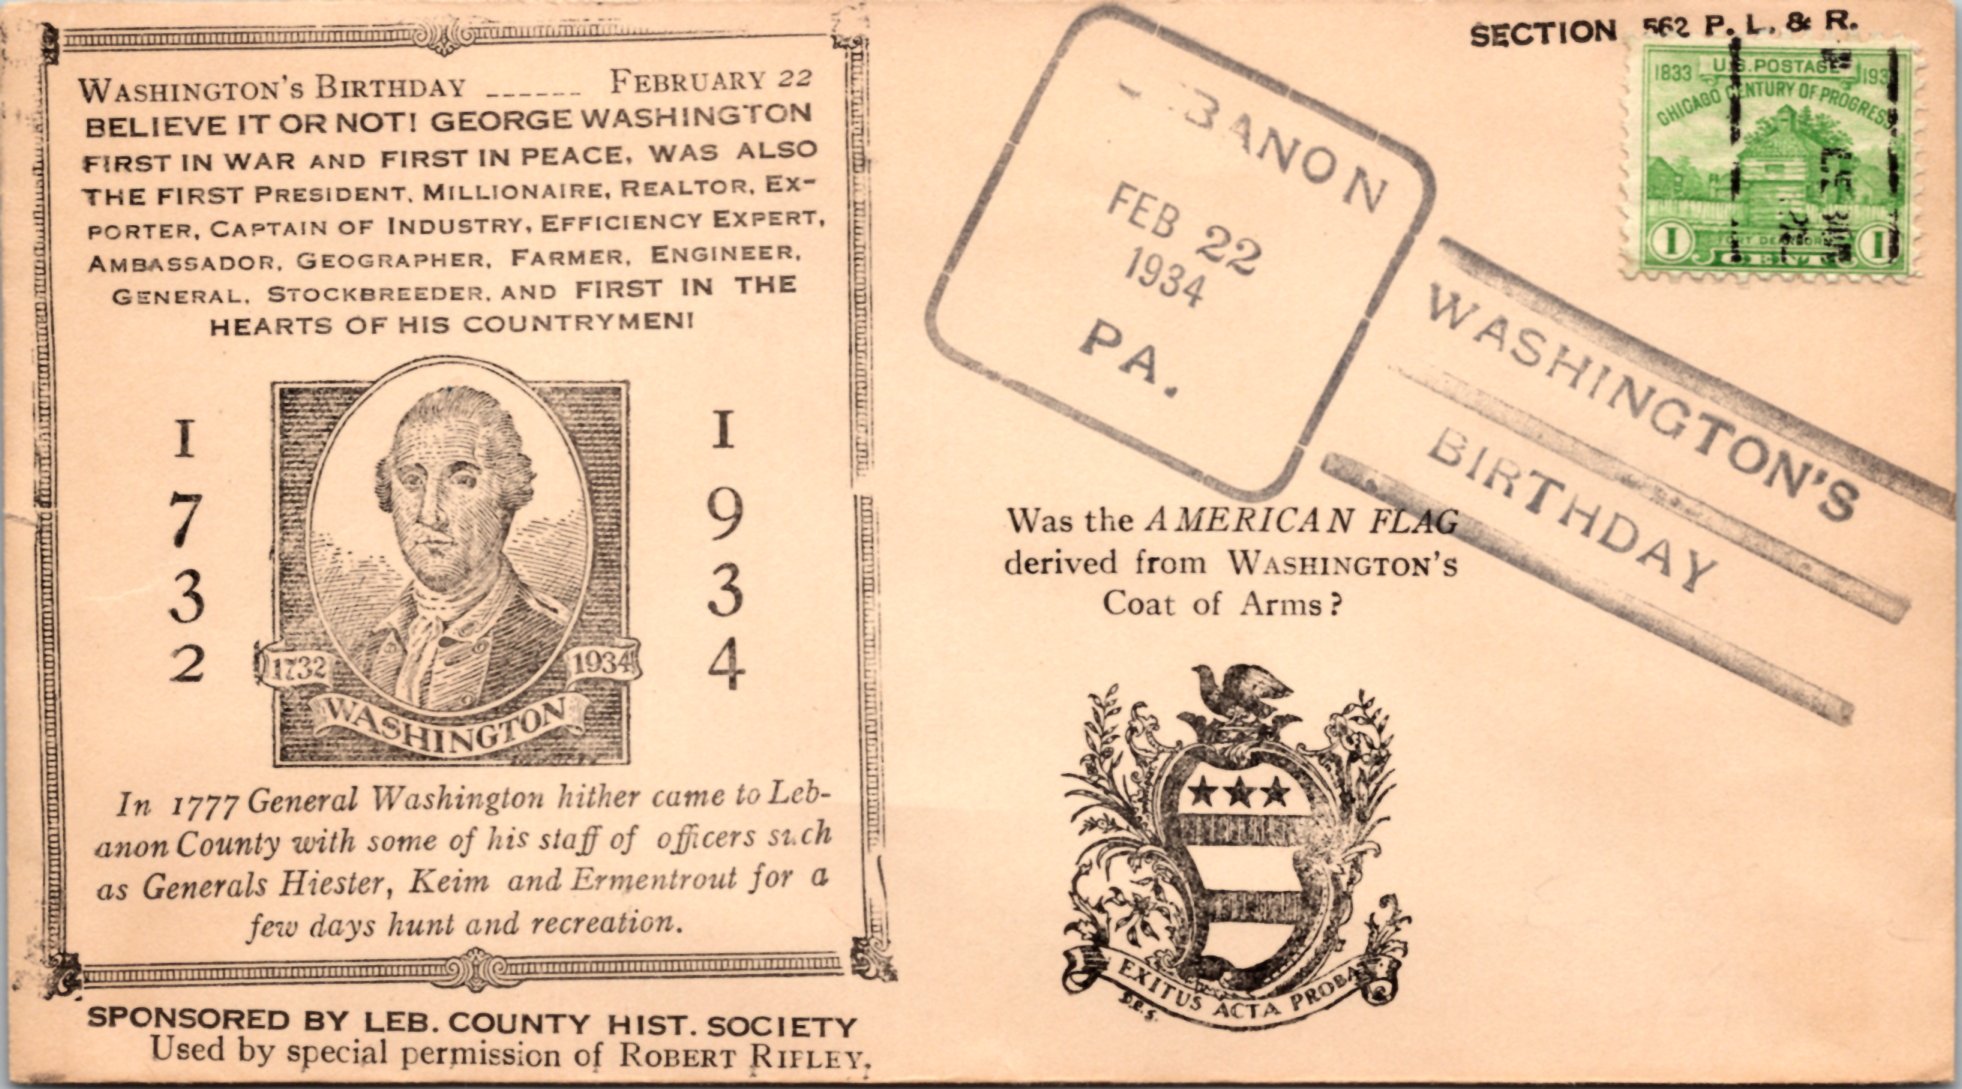 WASHINGTON'S BIRTHDAY ______ FEBRUARY 22
BELIEVE IT OR NOT! GEORGE WASHINGTON
FIRST IN WAR AND FIRST IN PEACE, WAS ALSO
THE FIRST PRESIDENT, MILLIONAIRE, REALTOR, EX-
PORTER, CAPTAIN OF INDUSTRY, EFFICIENCY EXPERT,
AMBASSADOR, GEOGRAPHER, FARMER, ENGINEER,
GENERAL, STOCKBREEDER, AND FIRST IN THE
HEARTS OF HIS COUNTRYMEN!
1732
1934
1732 1934
WASHINGTON
In 1777 General Washington hither came to Leb-
anon County with some of his staff of officers such
as Generals Hiester, Keim and Ermentrout for a
few days hunt and recreation.
SPONSORED BY LEB. COUNTY HIST. SOCIETY
Used by special permission of ROBERT RIPLEY.
SECTION 562 P. L. & R.
1833 U.S. POSTAGE 193
CHICAGO CENTURY OF PROGRESS
FORT DEARBORN
1 CENT 1
BANON
FEB 22
1934
PA.
WASHINGTON'S
BIRTHDAY
Was the AMERICAN FLAG
derived from WASHINGTON'S
Coat of Arms?
EXITUS ACTA PROBA
D.R.S.